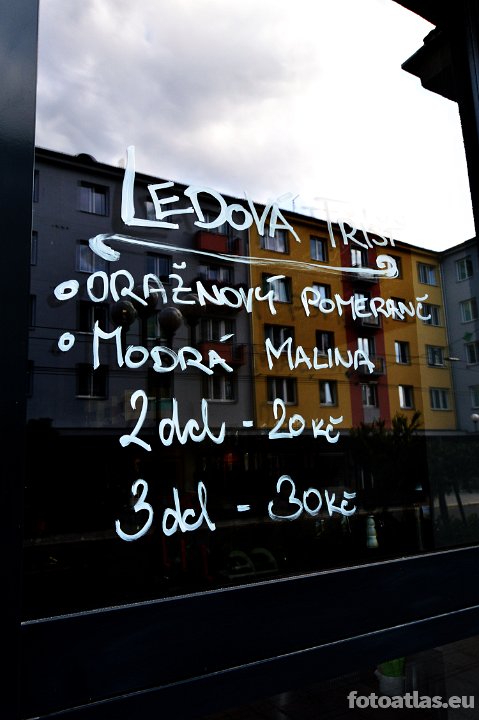 LEDOVÁ TŘÍŠŤ
• ORAŽNOVÝ POMERANČ
• MODRÁ MALINA
2 dcl - 20 Kč
3 dcl - 30 Kč
fotoatlas.eu